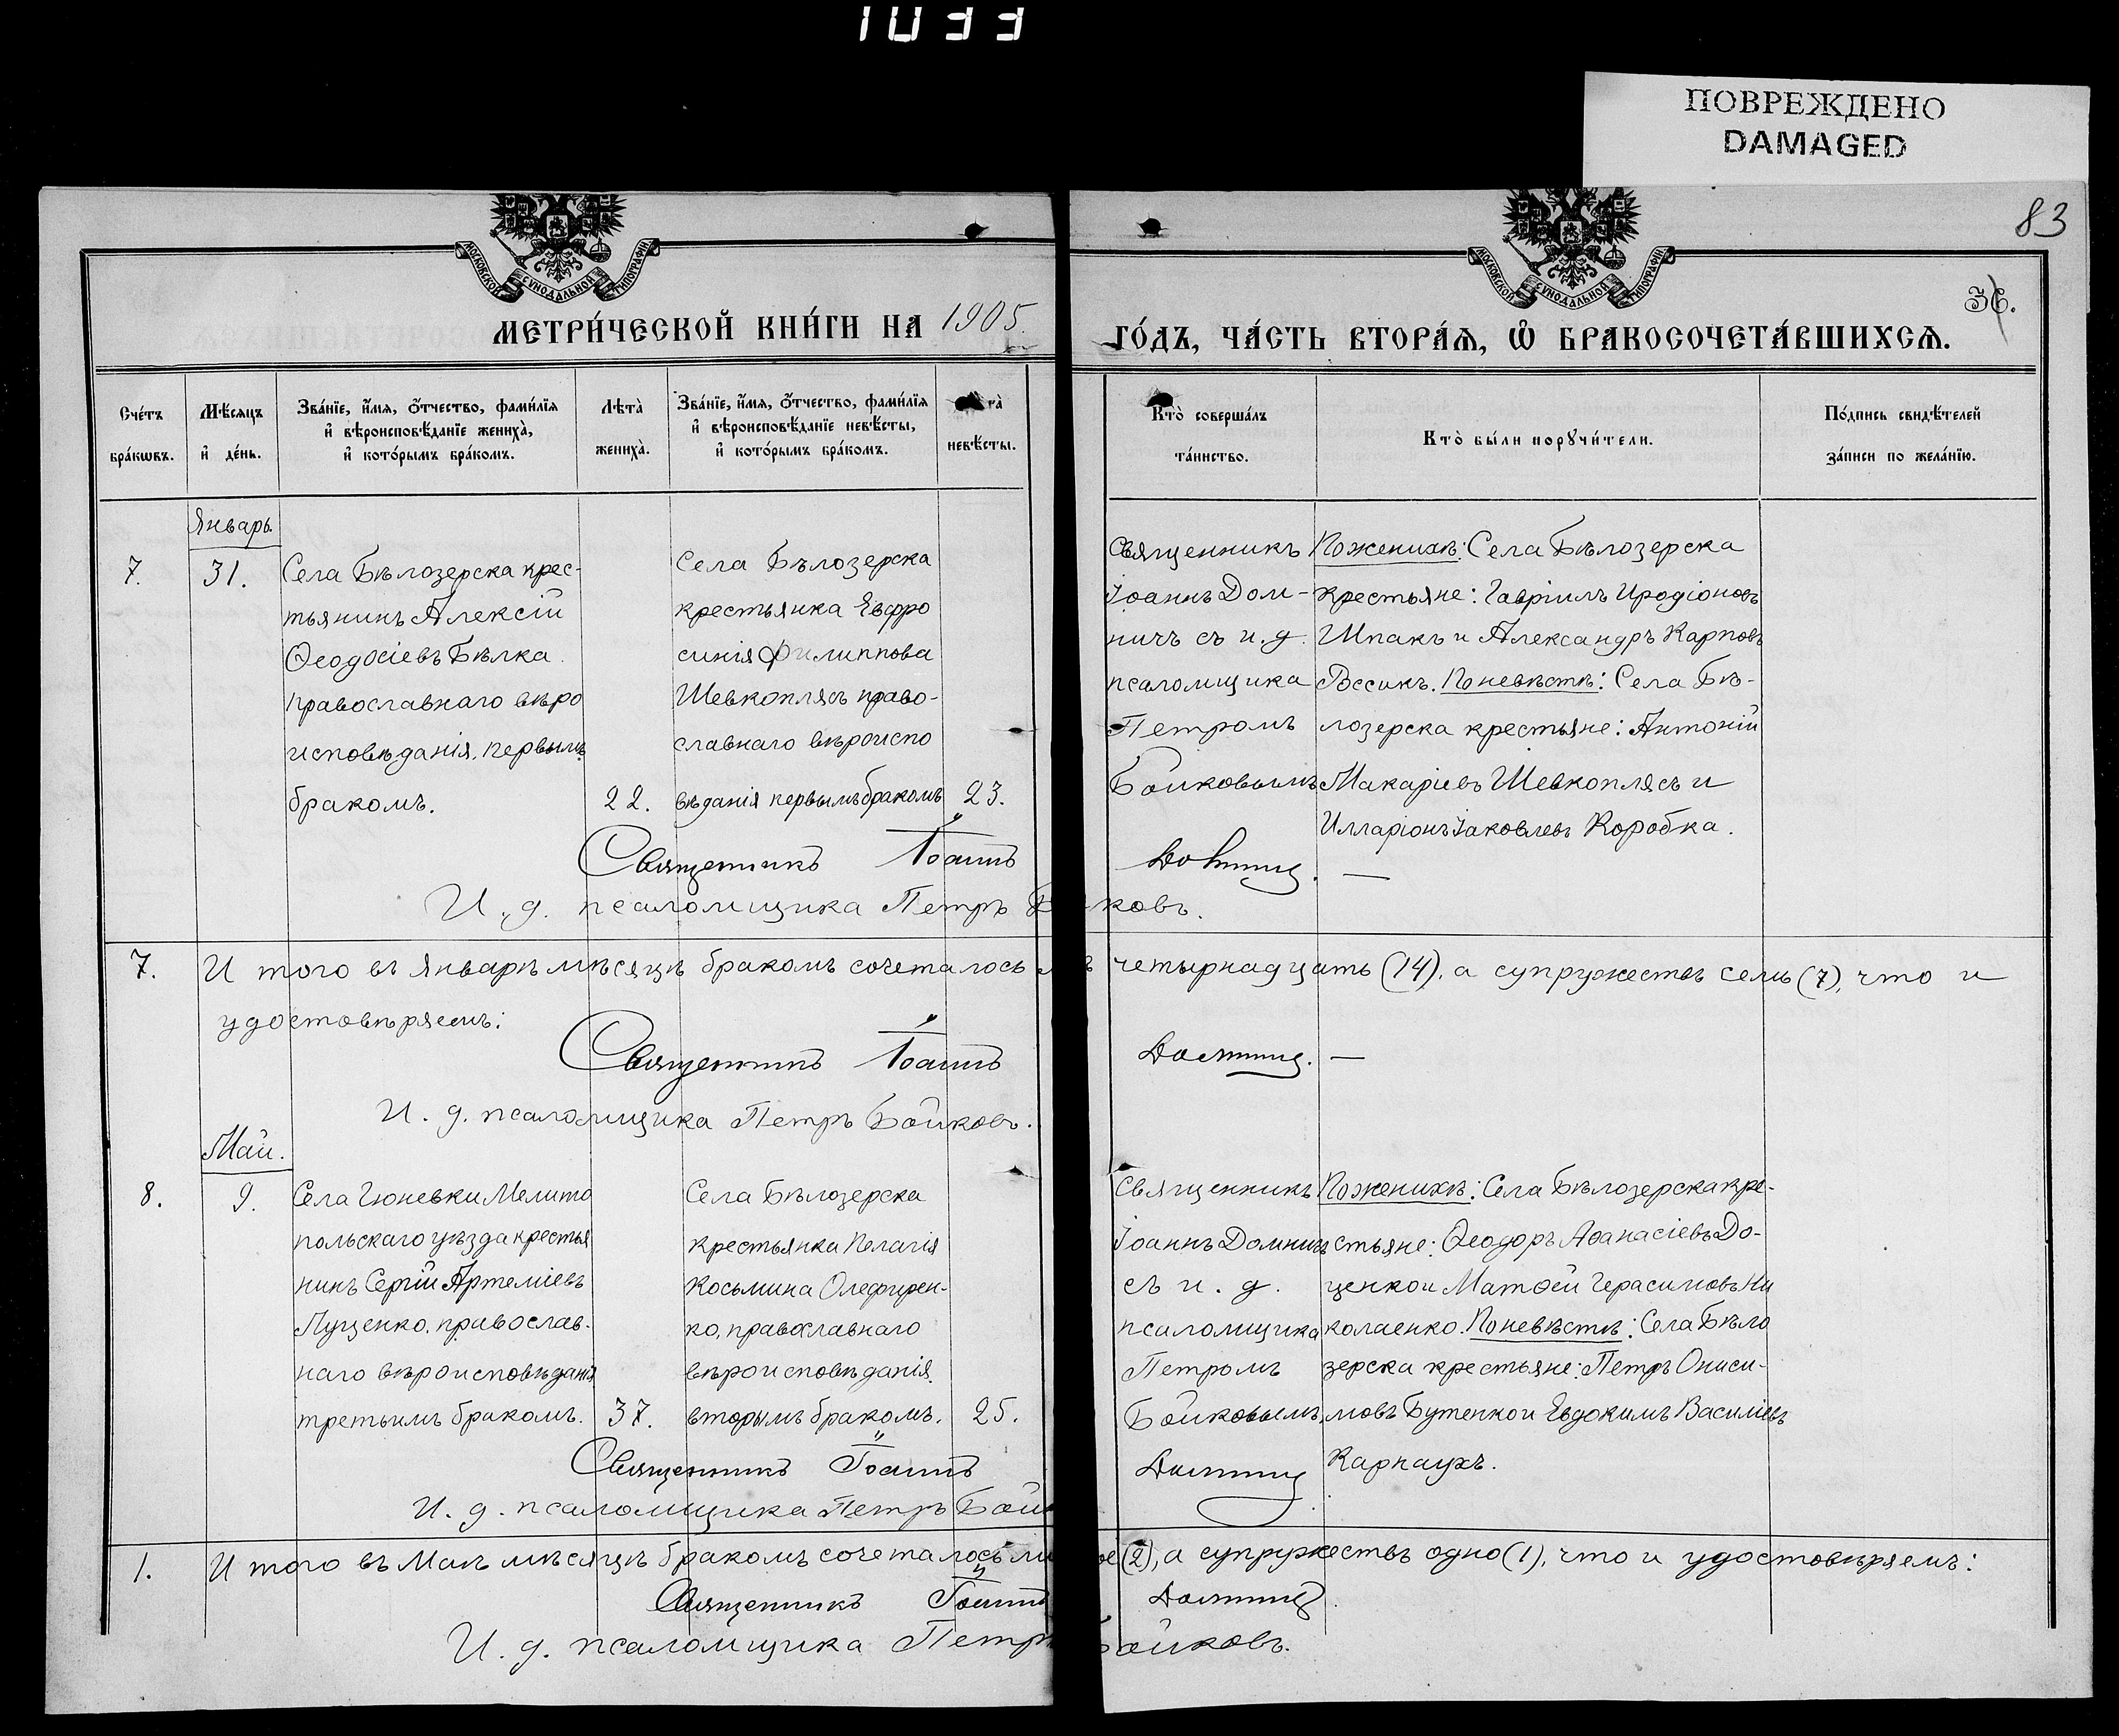 1033
ПОВРЕЖДЕНО
DAMAGED
83
36.
МОСКОВСКОЙ СѴНОДАЛЬНОЙ ТИПОГРАФІИ
МОСКОВСКОЙ СѴНОДАЛЬНОЙ ТИПОГРАФІИ
МЕТРИ́ЧЕСКОЙ КНИ́ГИ НА 1905.
ГО́ДЪ, ЧА́СТЬ ВТОРА́Ѧ, Ѽ БРАКОСОЧЕТА́ВШИХСѦ.
Сче́тъ
бра́кѡвъ.
Мѣ́сяцъ
и҆ де́нь.
Зва́нїе, и҆́мя, ѻ҆́тчество, фами́лїя
и҆ вѣроисповѣ́данїе жениха̀,
и҆ кото́рымъ бра́комъ.
Лѣта̀
жениха̀.
Зва́нїе, и҆́мя, ѻ҆́тчество, фами́лїя
и҆ вѣроисповѣ́данїе невѣ́сты,
и҆ кото́рымъ бра́комъ.
невѣ́сты.
Кто̀ соверша́лъ
та́инство.
Кто̀ бы́ли порꙋчи́тели.
По́дпись свидѣ́телей
за́писи по жела́нїю.
Январь.
7.
31.
Села Бѣлозерска крес-
тьянинъ Алексій
Ѳеодосіевъ Бѣлка
православнаго вѣро
исповѣданія, первымъ
бракомъ.
22.
Села Бѣлозерска
крестьянка Евфро
синія Филиппова
Шевкоплясъ право-
славнаго вѣроиспо
вѣданія первымъ бракомъ
23.
Священникъ
Іоаннъ Дом-
ничъ съ и. д.
псаломщика
Петромъ
Бойковымъ
По женихѣ: Села Бѣлозерска
крестьяне: Гавріилъ Иродіоновъ
Шпакъ и Александръ Карповъ
Поневѣстѣ: Села Бѣ-
лозерска крестьяне: Антоній
Макаріевъ Шевкоплясъ и
Илларіонъ Іаковлевъ Коробка.
Священникъ Іоаннъ Домничъ. —
И. д. псаломщика Петръ Бойковъ.
7.
И того въ Январѣ мѣсяцѣ бракомъ сочеталось четырнадцать (14), а супружествъ семь (7), что и
удостовѣряемъ:
Священникъ Іоаннъ Домничъ. —
И. д. псаломщика Петръ Бойковъ.
Май.
8.
9.
Села Гюневки Мелито
польскаго уѣзда крестья
нинъ Сергій Артеміевъ
Луценко, православ-
наго вѣроисповѣданія
третьимъ бракомъ.
37.
Села Бѣлозерска
крестьянка Пелагія
Косьмина Олефирен-
ко, православнаго
вѣроисповѣданія,
вторымъ бракомъ.
25.
Священникъ
Іоаннъ Домничъ
съ и. д.
псаломщика
Петромъ
Бойковымъ.
По женихѣ: Села Бѣлозерска кре-
стьяне: Ѳеодоръ Аѳанасіевъ До-
ценко и Матѳей Герасимовъ Ни
колаенко. Поневѣстѣ: Села Бѣло
зерска крестьяне: Петръ Ониси-
мовъ Бутенко и Евдокимъ Василіевъ
Карнаухъ.
Священникъ Іоаннъ Домничъ
И. д. псаломщика Петръ Бой
1.
И того въ Маѣ мѣсяцѣ бракомъ сочеталось (2), а супружествъ одно (1), что и удостовѣряемъ:
Священникъ Іоаннъ Домничъ.
И. д. псаломщика Петръ Бойковъ.